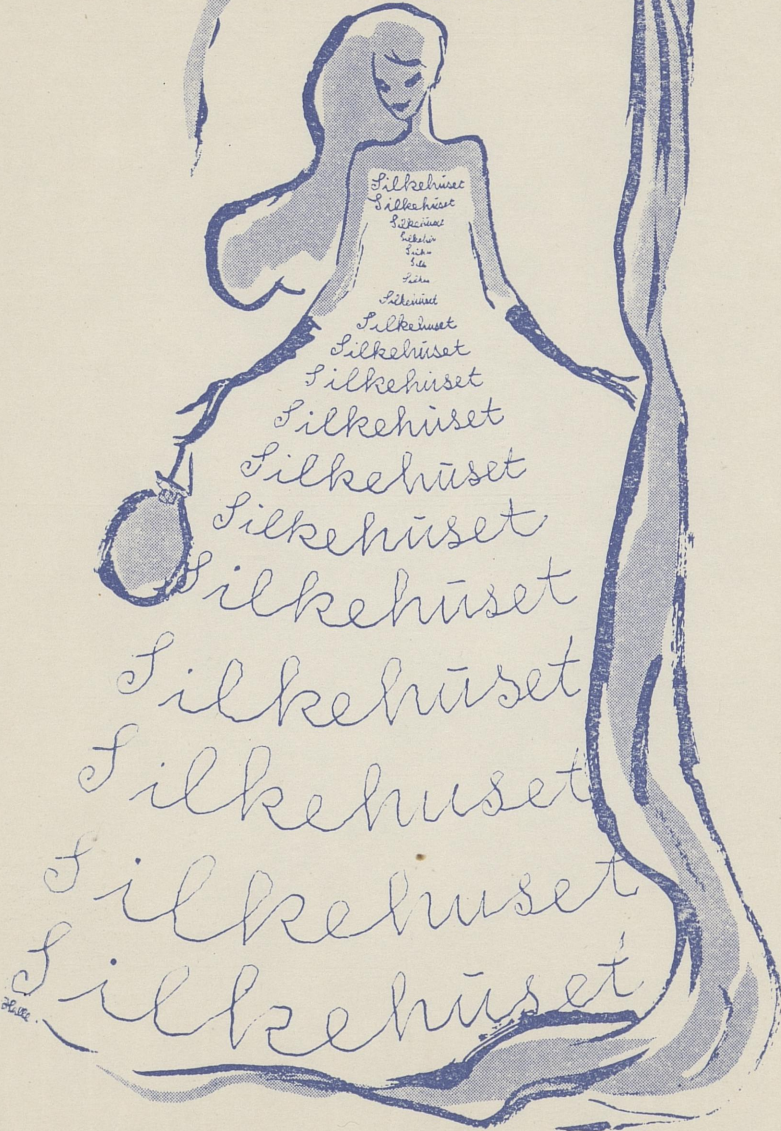 Silkehuset
Silkehuset
Silkehuset
Silkehus
Silke
Silk
Silke
Silkehuset
Silkehuset
Silkehūset
Silkehuset
Silkehūset
Silkehūset
Silkehūset
Silkehūset
Silkehūset
Silkehuset
Silkehuset
Silkehūset